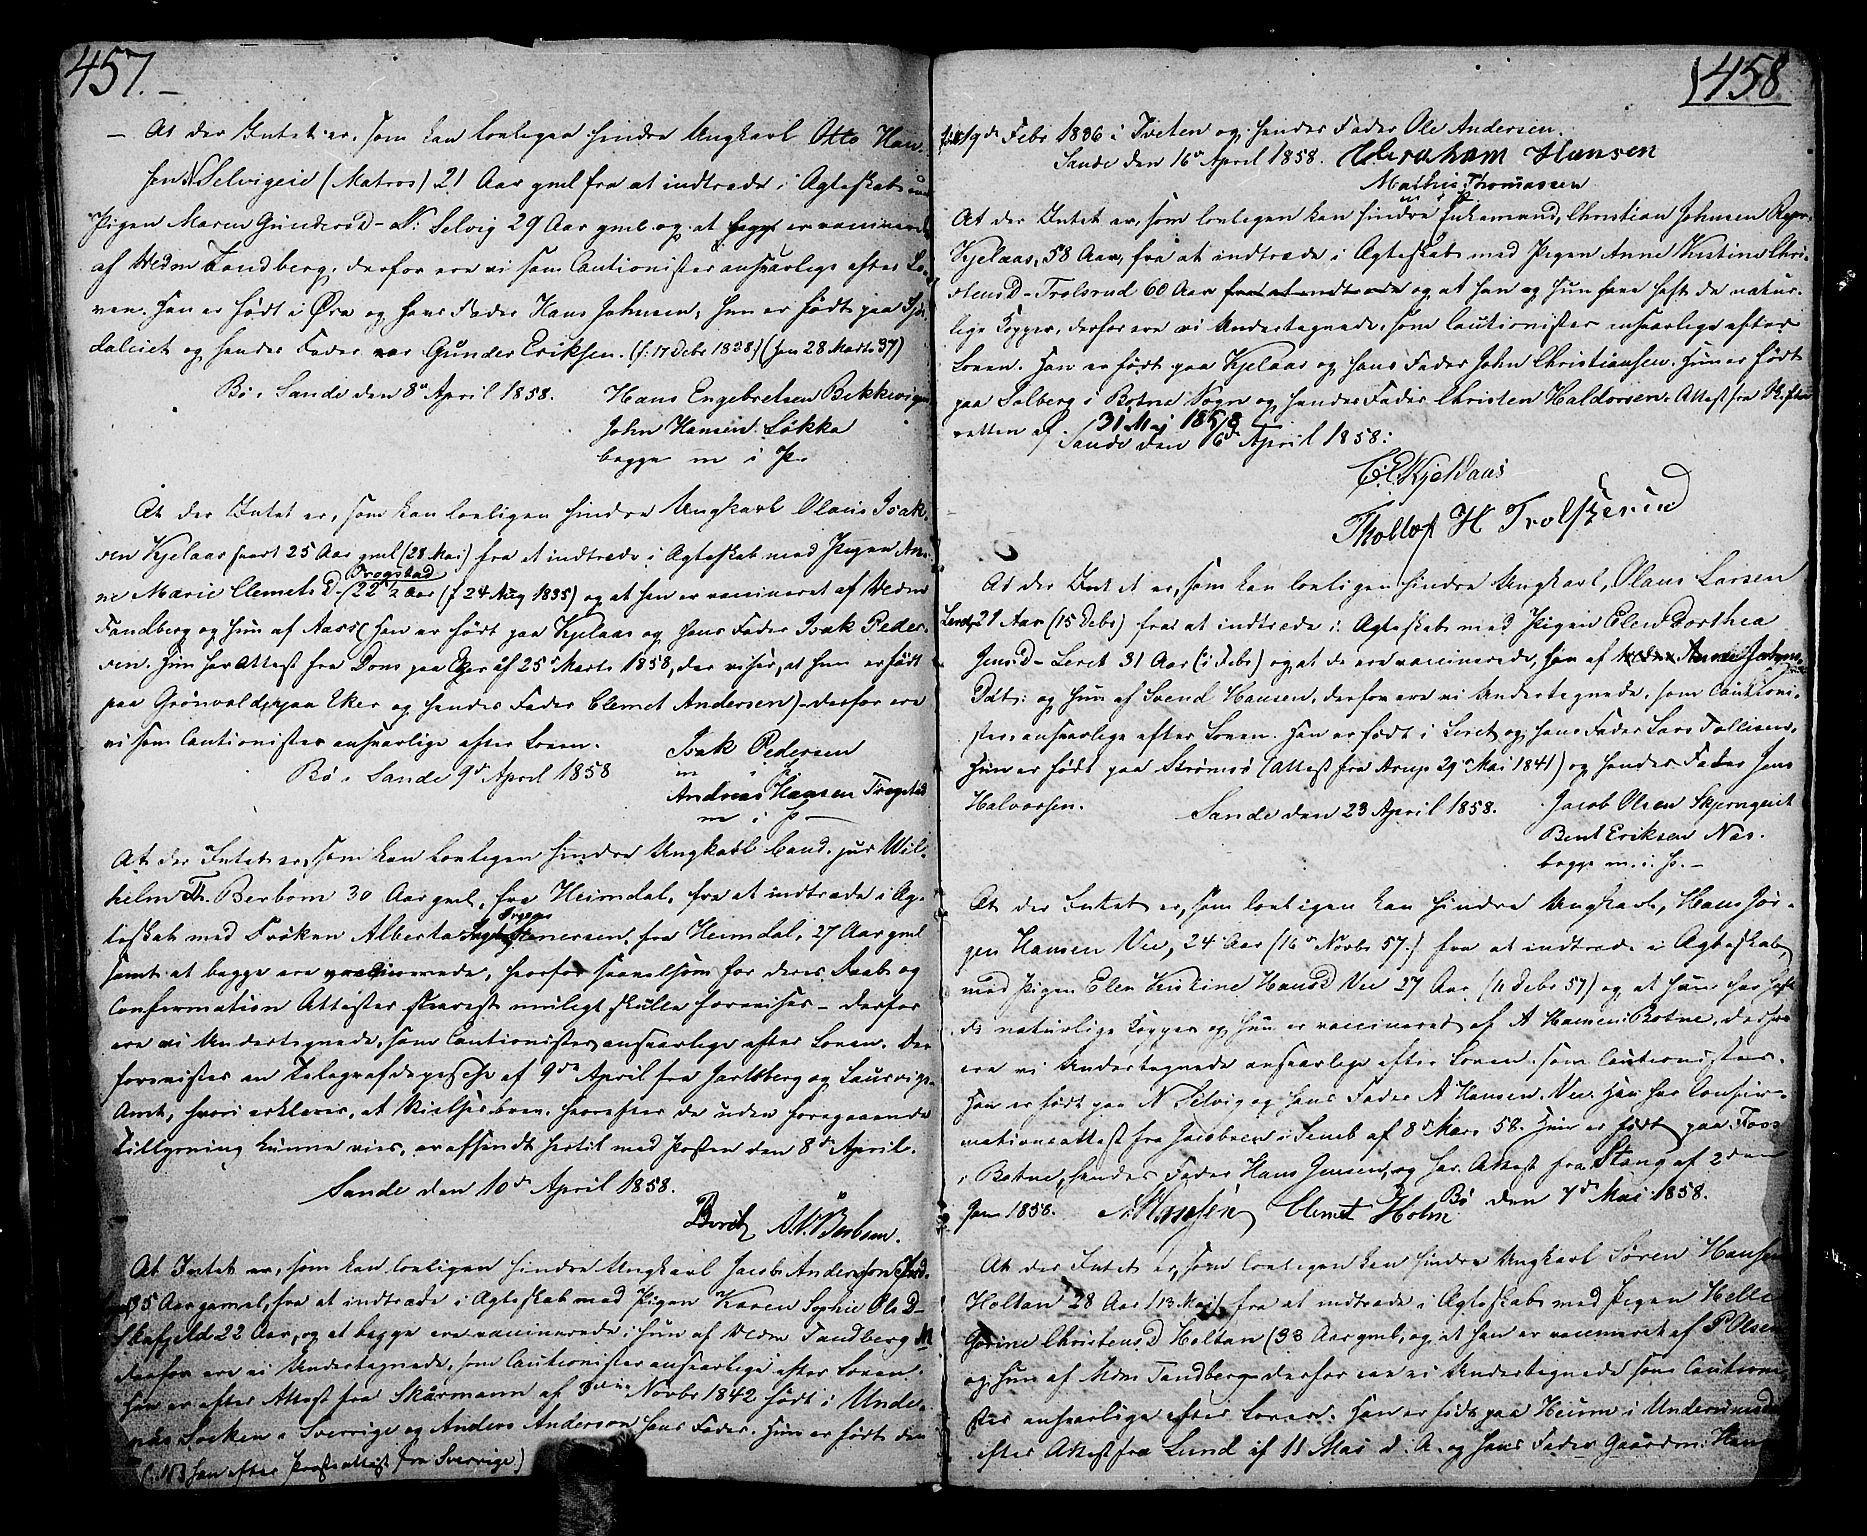 457.
— At der Intet er, som kan lovligen hindre Ungkarl Otto Han-
sen Selvigeie (Matros) 21 Aar gml fra at indtræde i Ægteskab med
Pigen Maren GundersD– N: Selvig 29 Aar gml og at begge er vaccinerede
af Mdm Tandberg, derfor ere vi som Cautionister ansvarlige efter Lo-
ven. Han er født i Øra og hans Fader Hans Johnsen, hun er født paa
daleiet og hendes Fader var Gunder Eriksen. (f. 17 Debr 1828) (han 28 Marts 37)
Bø i Sande den 8de April 1858. Hans Engebretsen Bekkevigen
John Hansen Løkka
begge m i P.
At der Intet er, som kan lovligen hindre Ungkarl Olaus Isak-
sen Kjelaas snart 25 Aar gml (28 Mai) fra at indtræde i Ægteskab med Pigen An-
Trogstad
ne Marie ClemetsD– 22 ½ Aar (f 24 Aug 1835) og at han er vaccineret af Mdm
Tandberg og hun af Aass (han er født paa Kjelaas og hans Fader Isak Peder-
sen. Hun har Attest fra Dons paa Eger af 25de Marts 1858, der viser, at hun er født
paa Grønvold paa Eker og hendes Fader Clemet Andersen) – derfor ere
vi som Cautionister ansvarlige efter Loven.
Bø i Sande 9de April 1858 Isak Pedersen
m i P
Andreas Hansen Trogstad
m i P —
At der Intet er, som kan lovligen hindre Ungkarl Cand. jur Wil-
helm Th. Berbom 30 Aar gml, fra Heimdal, fra at indtræde i Æg-
teskab med Frøken Alberta Stenersen, fra Heimdal, 27 Aar gml
samt at begge ere vaccinerede, hvorfor saavelsom for deres Daab og
Confirmation Attester snarest muligt skulle forevises – derfor
ere vi Undertegnede, som Cautionister ansvarlige efter Loven. Der
forevistes en Telegrafdepesche af 9de April fra Jarlsberg og Laurvigs
Amt, hvori erklæres, at Vielsesbrev, hvorefter de uden foregaaende
Tillysning kunne vies, er afsendt hertil med Posten den 8de April.
Sande den 10de April 1858.
At Intet er, som kan lovligen hindre Ungkarl Jacob Anderson
35 Aar gamel, fra at indtræde i Ægteskab med Pigen Karen Sophie OlsD–
Skafjeld 22 Aar, og at begge ere vaccinerede, hun af Mdm Tandberg
derfor ere vi Undertegnede, som Cautionister ansvarlige efter Loven.
Han er efter Attest fra Skårmann af Novbr 1842 født i Unde-
näs Socken i Sverrige og Anders Anderson hans Fader. Hun er født den
han efter Præsteattest fra Sverrige)
458
19de Febr 1836 i Tveten og hendes Fader Ole Andersen.
Sande den 16de April 1858. Abraham Hansen
Mathis Thomassen
m i P
At der Intet er, som lovligen kan hindre Enkemand, Christian Johnsen
Kjelaas, 58 Aar, fra at indtræde i Ægteskab med Pigen Anne Kirstine Chri-
stensD– Trolsrud 60 Aar fra at indtræde og at han og hun have haft de natur-
lige Kopper, derfor ere vi Undertegnede, som Cautionister ansvarlige efter
Loven. Han er født paa Kjelaas og hans Fader John Christiansen. Hun er født
paa Solberg i Botne Sogn og hendes Fader Christen Haldorsen. Attest fra Skifte-
retten af 31 Maj 1858
Sande den 16de April 1858.
C: C Kjelaas
At der Intet er, som kan lovligen hindre Ungkarl, Olaus Larsen
Leret, 21 Aar (15 Debr) fra at indtræde i Ægteskab med Pigen Elen Dorthea
JensD– Leret 31 Aar (i Febr) og at de ere vaccinerede, han af Anne Jakobs-
Datr: og hun af Svend Hansen, derfor ere vi Undertegnede, som Cautioni-
ster, ansvarlige efter Loven. Han er født i Leret og hans Fader Lars Tollisen.
Hun er født paa Strømsø (Attest fra Arup 29de Mai 1841) og hendes Fader Jens
Halvorsen. Sande den 23 April 1858. Jacob Olsen Skjerngeiet
Bent Eriksen Næs.
begge m. i. P. —
At der Intet er, som lovligen kan hindre Ungkarl, Hans Jør-
gen Hansen Vee, 24 Aar (16de Novbr 57) fra at indtræde i Ægteskab
med Pigen Elen Kirstine HansD Vee 27 Aar (11 Debr 57) og at han har haft
de naturlige Kopper og hun er vaccineret af A Hansen: Botne, derfor
ere vi Undertegnede ansvarlige efter Loven som Cautionister.
Han er født paa N Selvig og hans Fader A Hansen Vee. Han har Confir-
mationsattest fra Jacobsen i Sneb af 8de Mars 58. Hun er født paa
i Botne, hendes Fader Hans Jensen, og har Attest fra Stang af 2den
Jan 1858. A Hansen Clemet Holm Bø den 7de Mai 1858.
At der Intet er, som lovligen kan hindre Ungkarl Søren Hansen
Holtan 28 Aar (13 Mai) fra at indtræde i Ægteskab med Pigen Helle
Gurine ChristensD Holtan (33 Aar gml, og at han er vaccineret af P Olsen
og hun af Mdm Tandberg derfor ere vi Undertegnede som Cautioni-
ster ansvarlige efter Loven. Han er født paa Heum i
efter Attest fra Lund af 11 Mai d. A. og hans Fader Gaardm: Hans